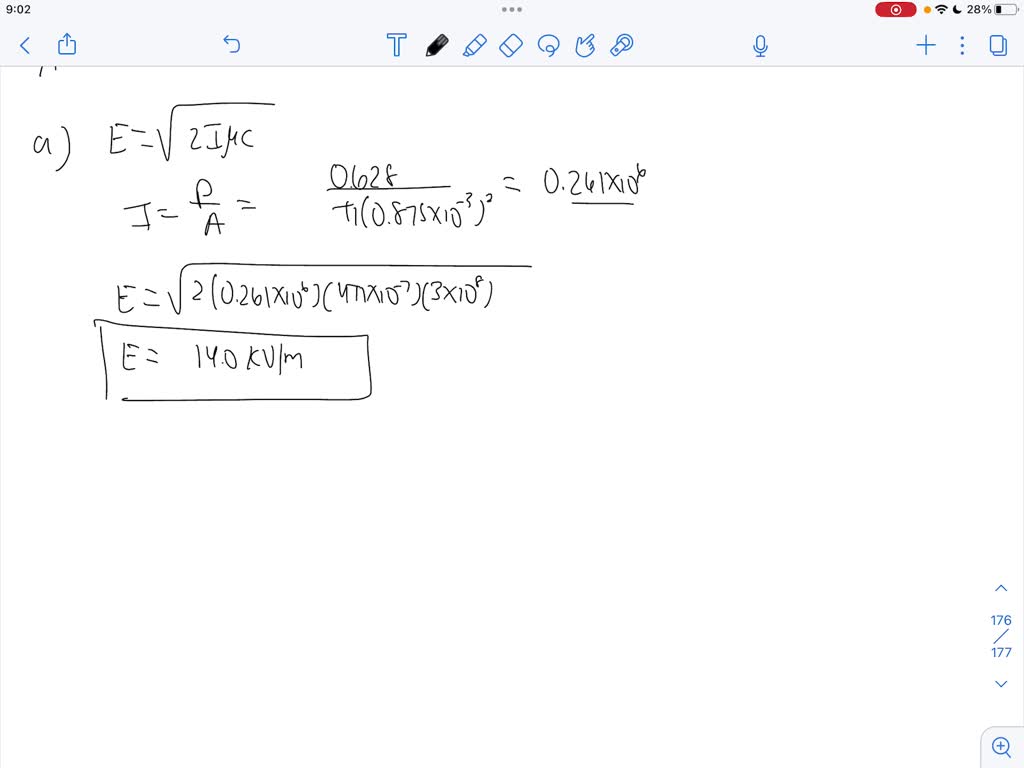 9:02
28%
T
a) E=√2IμC
I = P/A = 0.628/π(0.875×10⁻³)² = 0.261×10⁶
E=√2(0.261×10⁶)(4π×10⁻⁷)(3×10⁸)
E= 14.0 KV/m
176
/
177